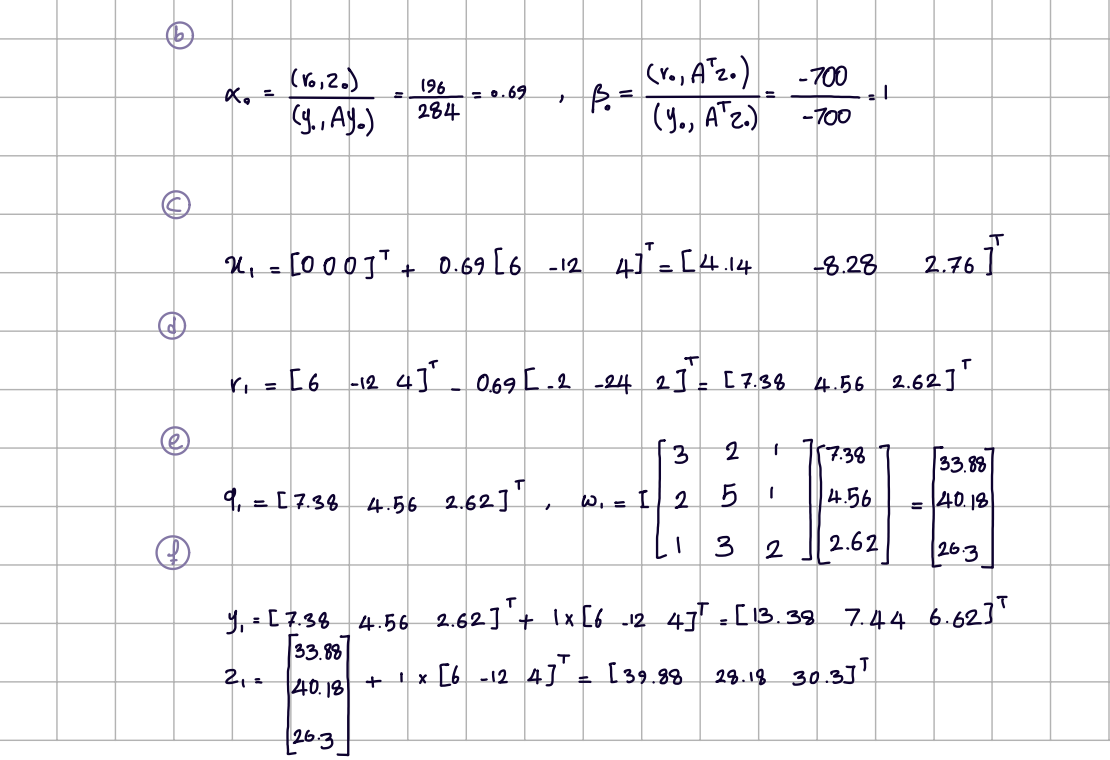 b
α₀ = (r₀,z₀)/(y₀,Ay₀) = 196/284 = 0.69 , β₀ = (r₀,Aᵀz₀)/(y₀,Aᵀz₀) = -700/-700 = 1
c
x₁ = [0 0 0]ᵀ + 0.69[6 -12 4]ᵀ = [4.14 -8.28 2.76]ᵀ
d
r₁ = [6 -12 4]ᵀ - 0.69[-2 -24 2]ᵀ = [7.38 4.56 2.62]ᵀ
e
q₁ = [7.38 4.56 2.62]ᵀ , ω₁ = [ [3 2 1; 2 5 1; 1 3 2] [7.38; 4.56; 2.62] = [33.88; 40.18; 26.3]
f
y₁ = [7.38 4.56 2.62]ᵀ + 1×[6 -12 4]ᵀ = [13.38 7.44 6.62]ᵀ
z₁ = [33.88; 40.18; 26.3] + 1 × [6 -12 4]ᵀ = [39.88 28.18 30.3]ᵀ